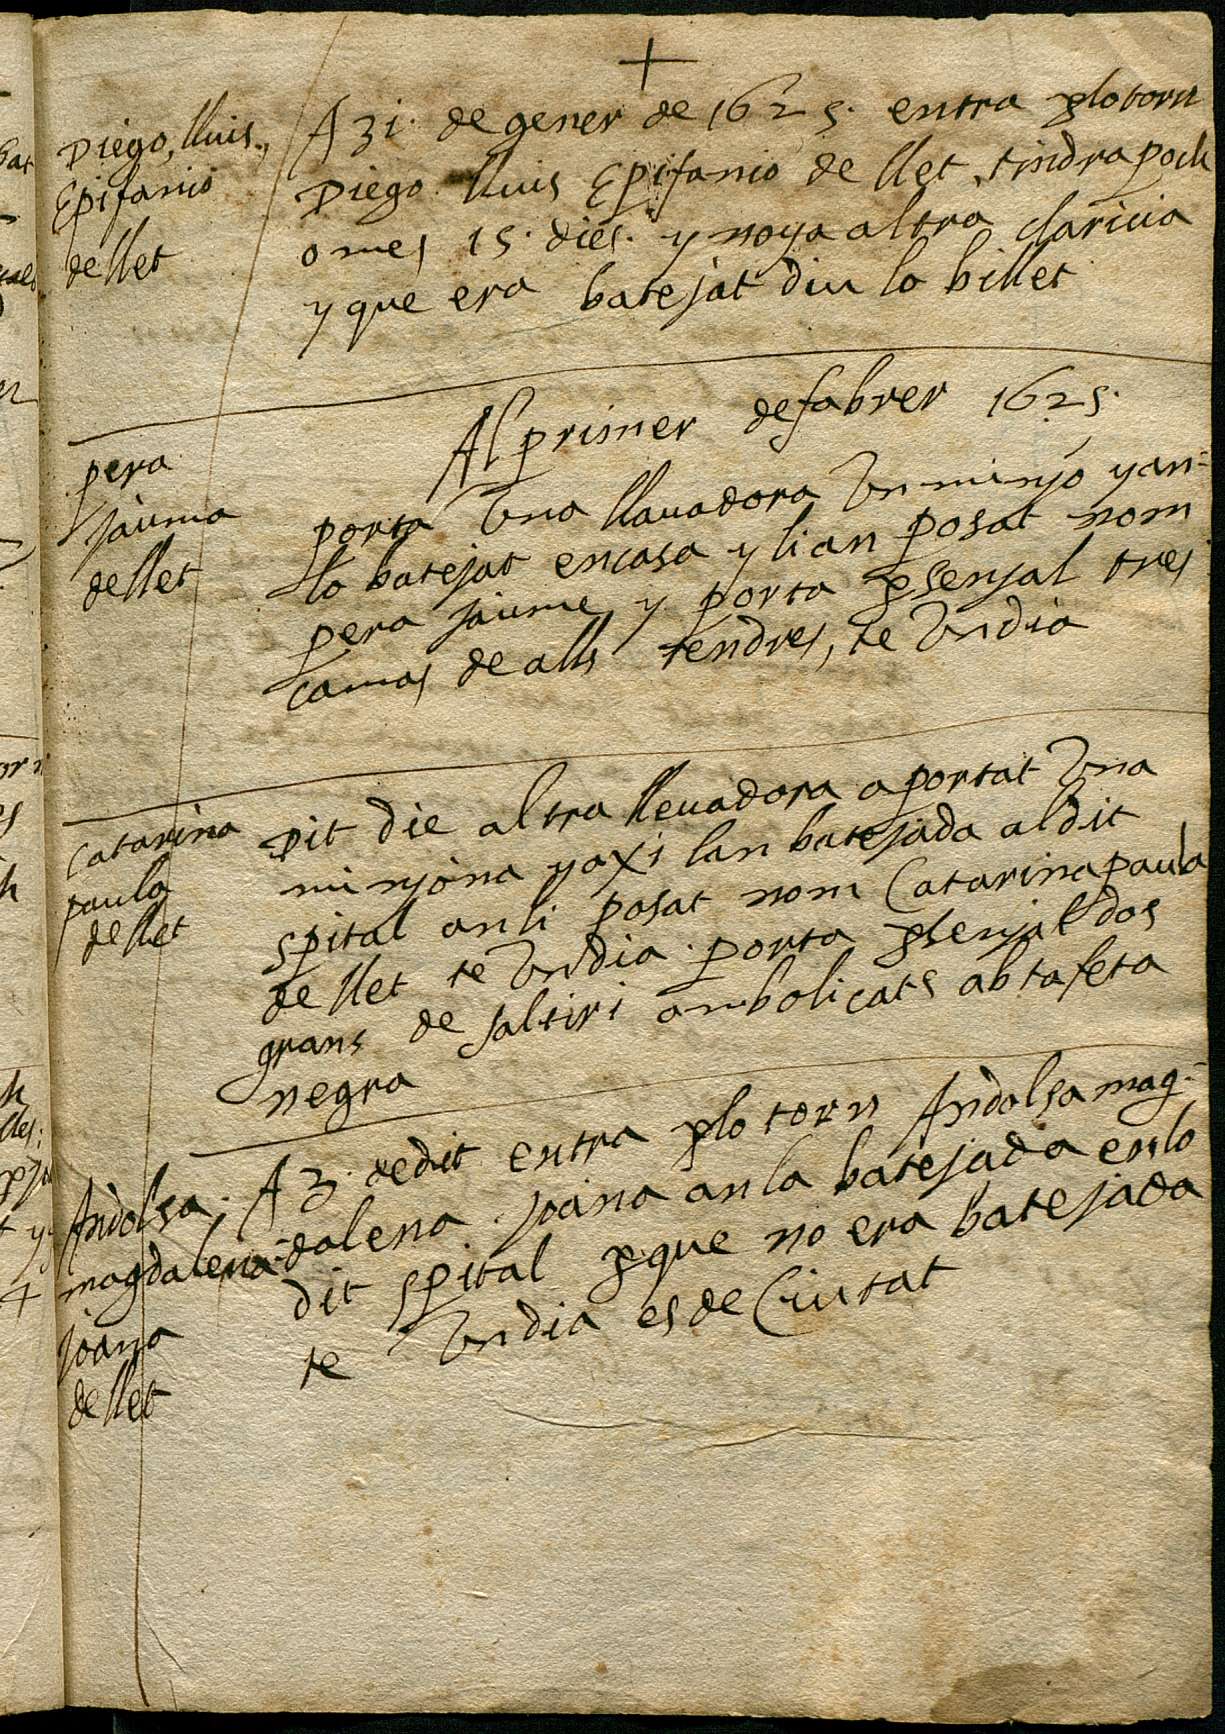 +
Diego, lluis,
Epifanio
de llet
A 31. de gener de 1625. entra plo torn
Diego lluis Epifanio de llet, tindra poch
o mes 15. dies. y noya altra claricia
y que era batejat diu lo billet
pera
jauma
de llet
Al primer de fabrer 1625.
porta Una llauadora Un minyo y an-
lo batejat encasa y li an posat nom
pera jaume, y porta psenyal tres
camas de alls tendres, te Un dia
Catarina
paula
de llet
Dit die altra lleuadora aportat Una
minyona y axi lan batejada al dit
spital anli posat nom Catarina paula
de llet te Un dia porta psenyal dos
grans de saltiri ambolicats ab tafeta
negra
Andolsa
magdalena
joana
de llet
A 3. de dit entra plo torn Andolsa mag-
dalena joana an la batejada en lo
dit spital pque no era batejada
te Un dia es de Ciutat